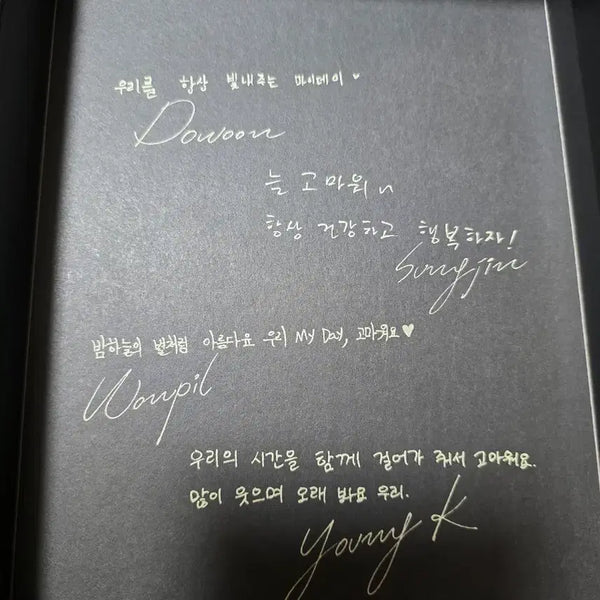 우리를 항상 빛내주는 마이데이♥
Dowoon
늘 고마워~
항상 건강하고 행복하자!
Sungjin
밤하늘의 별처럼 아름다운 우리 My Day, 고마워요♥
Wonpil
우리의 시간을 함께 걸어가 줘서 고마워요.
많이 웃으며 오래 봐요 우리.
Young K